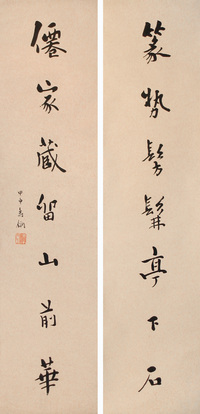 篆势髣髴亭下石
僊家藏留山前華
甲申